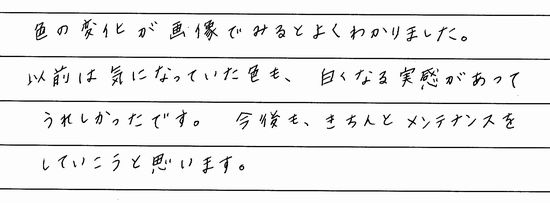 色の変化が画像でみるとよくわかりました。
以前は気になっていた色も、白くなる実感があって
うれしかったです。 今後も、きちんとメンテナンスを
していこうと思います。